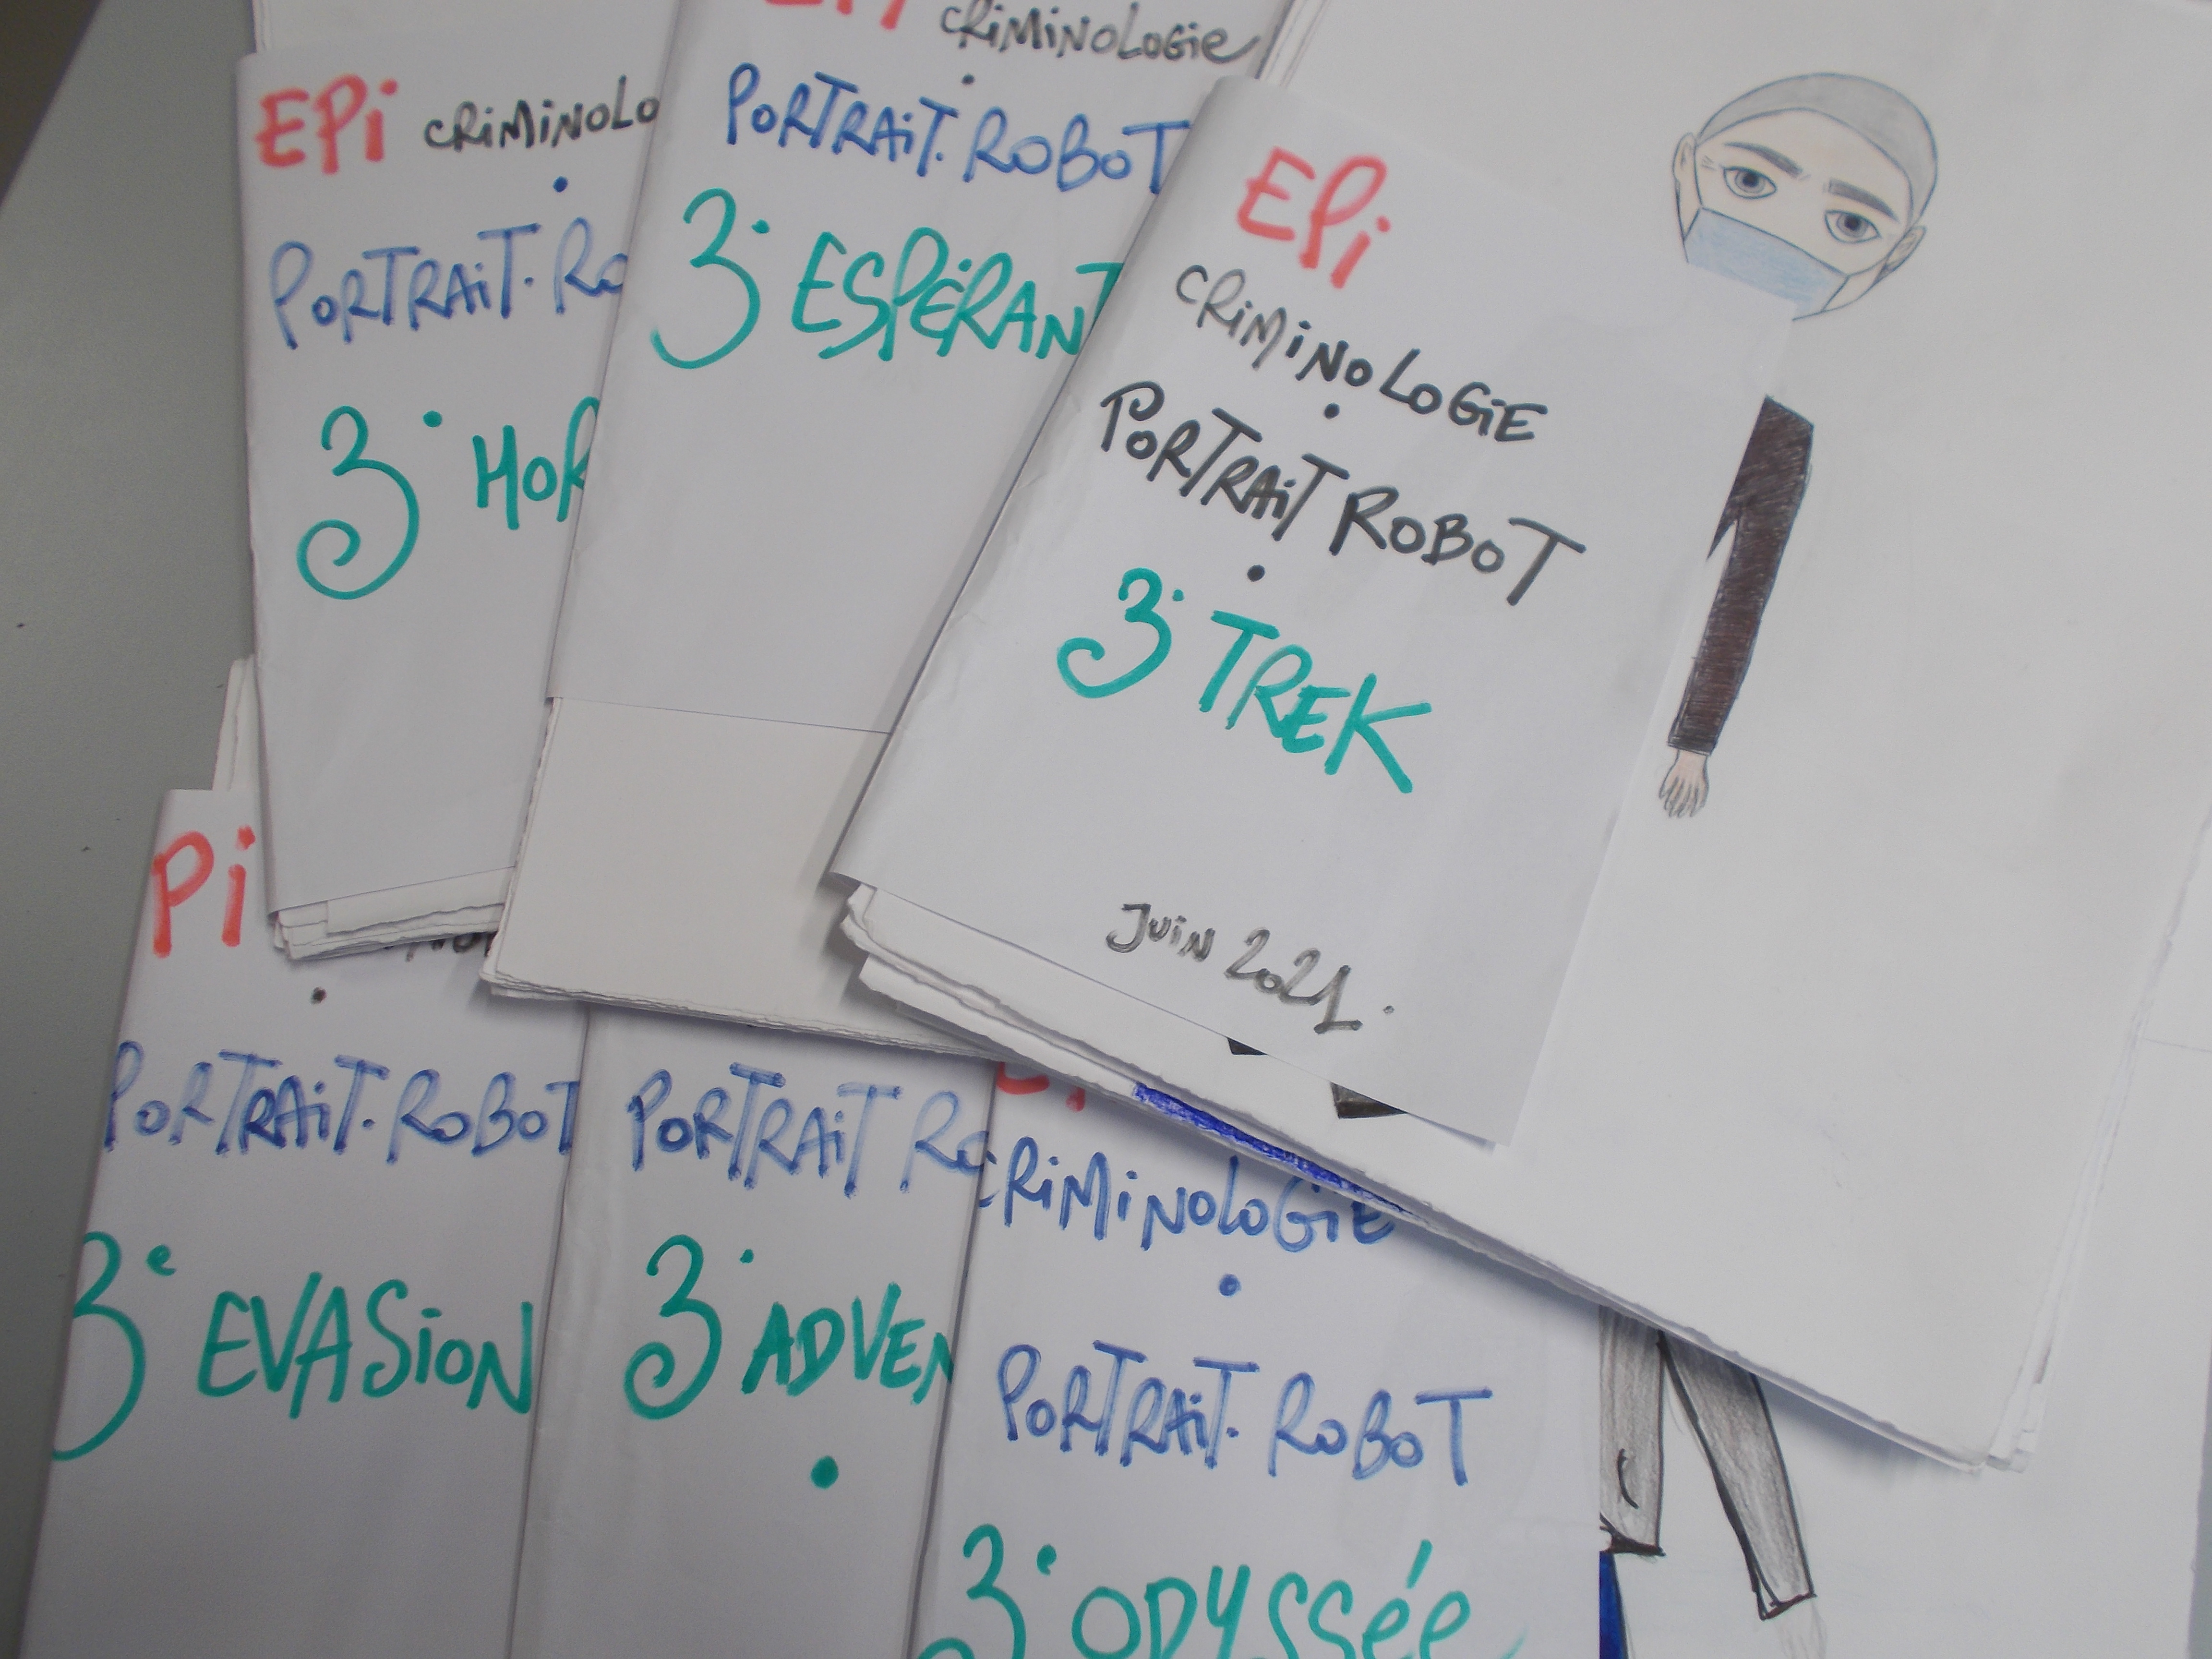 EPi CRiMiNOLO
PORTRAiT. RO
3° HOR
CRiMiNOLOGie
PORTRAiT. ROBOT
3° ESPÉRANT
EPi
CRiMiNOLOGiE
PORTRAiT ROBOT
3° TREK
JuiN 2021.
Pi
PORTRAiT. ROBOT
3e EVASiON
PORTRAiT RO
3° ADVEN
CRiMiNOLOGiE
PORTRAiT. ROBOT
3e ODYSSée